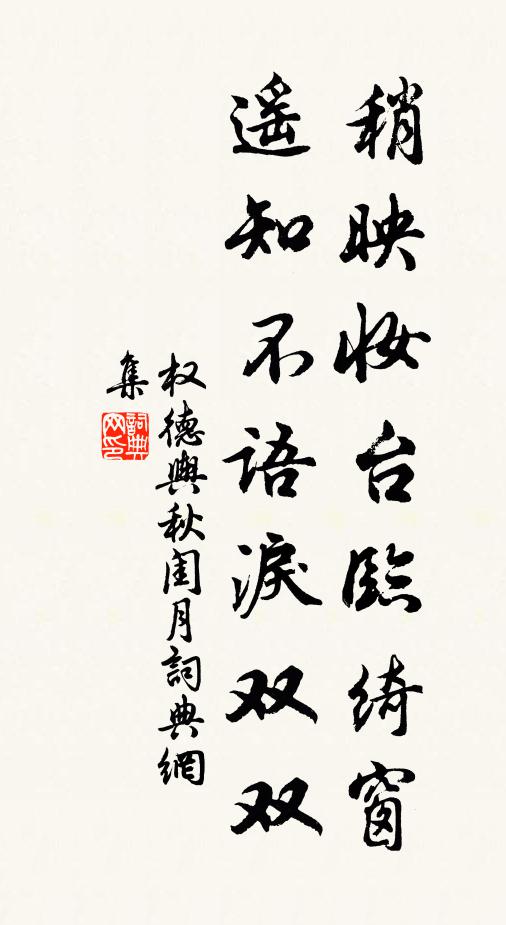 稍映妆台臨绮窗
遥知不语淚双双
权德輿秋闺月詞典網
集
詞典
网印